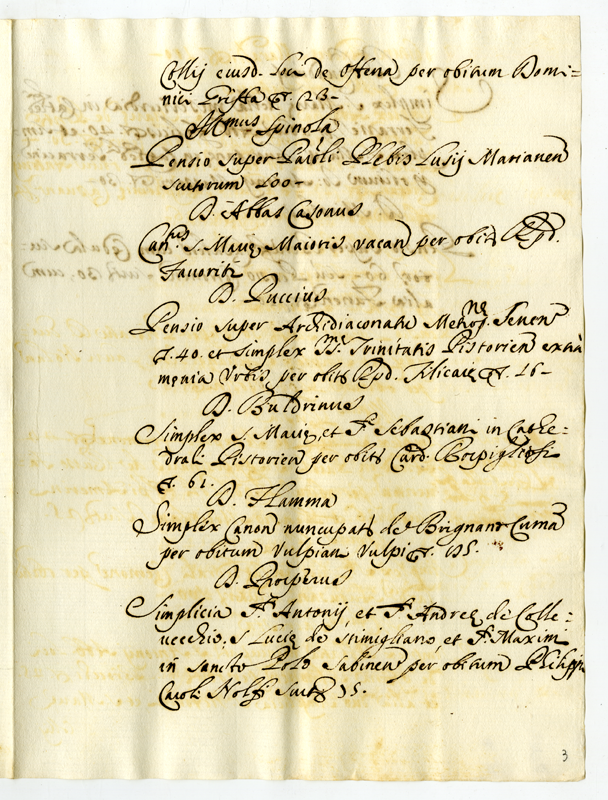 Collij eiusd. loci de Ofena per obitum Domi=
nici &. 23-
Spinola
Pensio super Paroli. Plebis Lusij Marianen
scutorum 100-
D. Abbas Casonus
Can.tus s. Marię Maioris vacan per obit
Favoriti
D. Puccius
Pensio super Archidiaconatu Metrop.ne Senen
&. 40. et simplex Trinitatis Pistorien extra
menia Urbis per obit &. 16-
D. Buldrinus
Simplex s. Marię, et S. Sebastiani in Cathe=
drali Pistorien per obit Card. Rospigliosi
&. 61.
D. Flamma
Simplex Canon nuncupat de Brignano Cuman
per obitum Vulpian Vulpi &. 195.
D. Prosperus
Simplicia S. Antonij, et S. Andreę de Colle=
vecchio, s Lucię de Stimigliano, et S. Maximi
in sancto Polo Sabinen per obitum Philippi
Caroli Nolfi Scut 35.
3